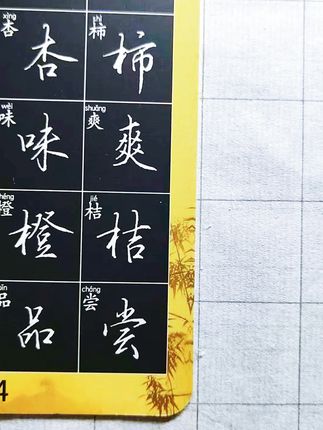 xìng shì
杏 杏 柿 柿
wèi shuǎng
味 味 爽 爽
héng jié
橙 橙 桔 桔
pǐn cháng
品 品 尝 尝
4